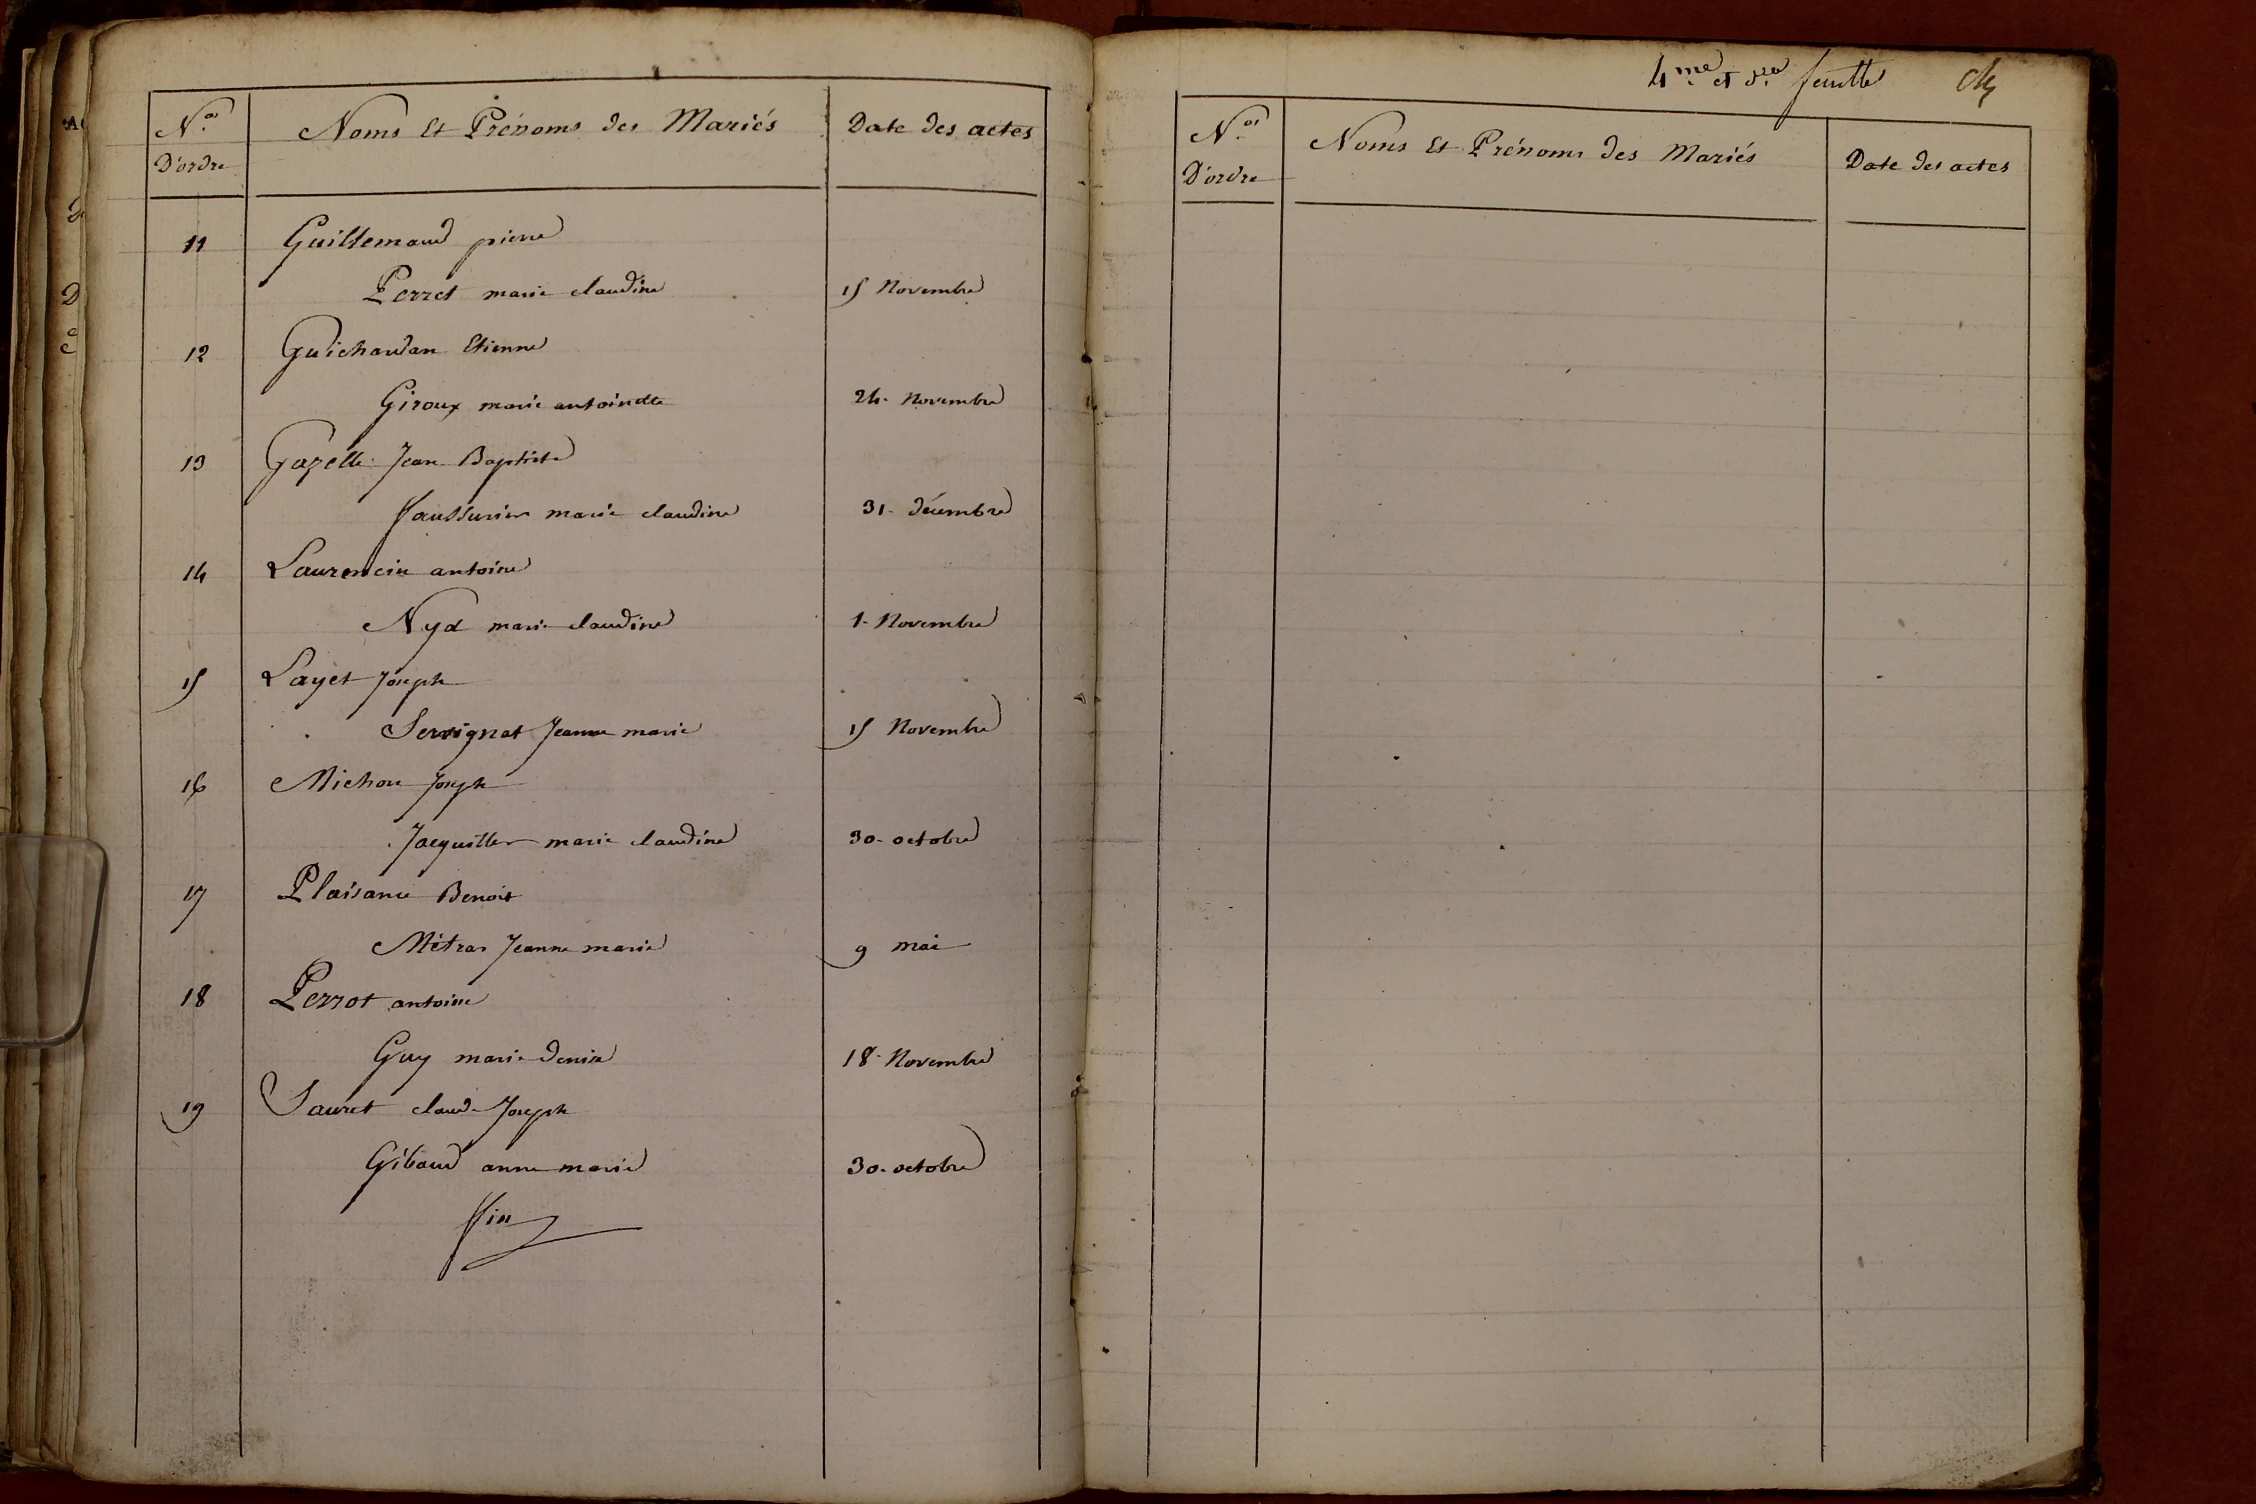 N.os D'ordre Noms Et Prénoms des Mariés Date des actes
11 Guillemaud pierre
Perret marie claudine 15 Novembre
12 Guichardan Etienne
Giroux marie antoinette 24. Novembre
13 Gazelle Jean Baptiste
Faussurier marie claudine 31. décembre
14 Laurencin antoine
Nyd marie claudine 1. Novembre
15 Layet Joseph
Servignat Jeanne marie 15 Novembre
16 Michon Joseph
Jacquiller marie claudine 30. octobre
17 Plaisance Benoit
Mètras Jeanne marie 9 mai
18 Perrot antoine
Guy marie denise 18. Novembre
19 Sauret claude Joseph
Gibaud anne marie 30. octobre
fin
4.me et d.re feuille
N.os D'ordre Noms Et Prénoms des Mariés Date des actes